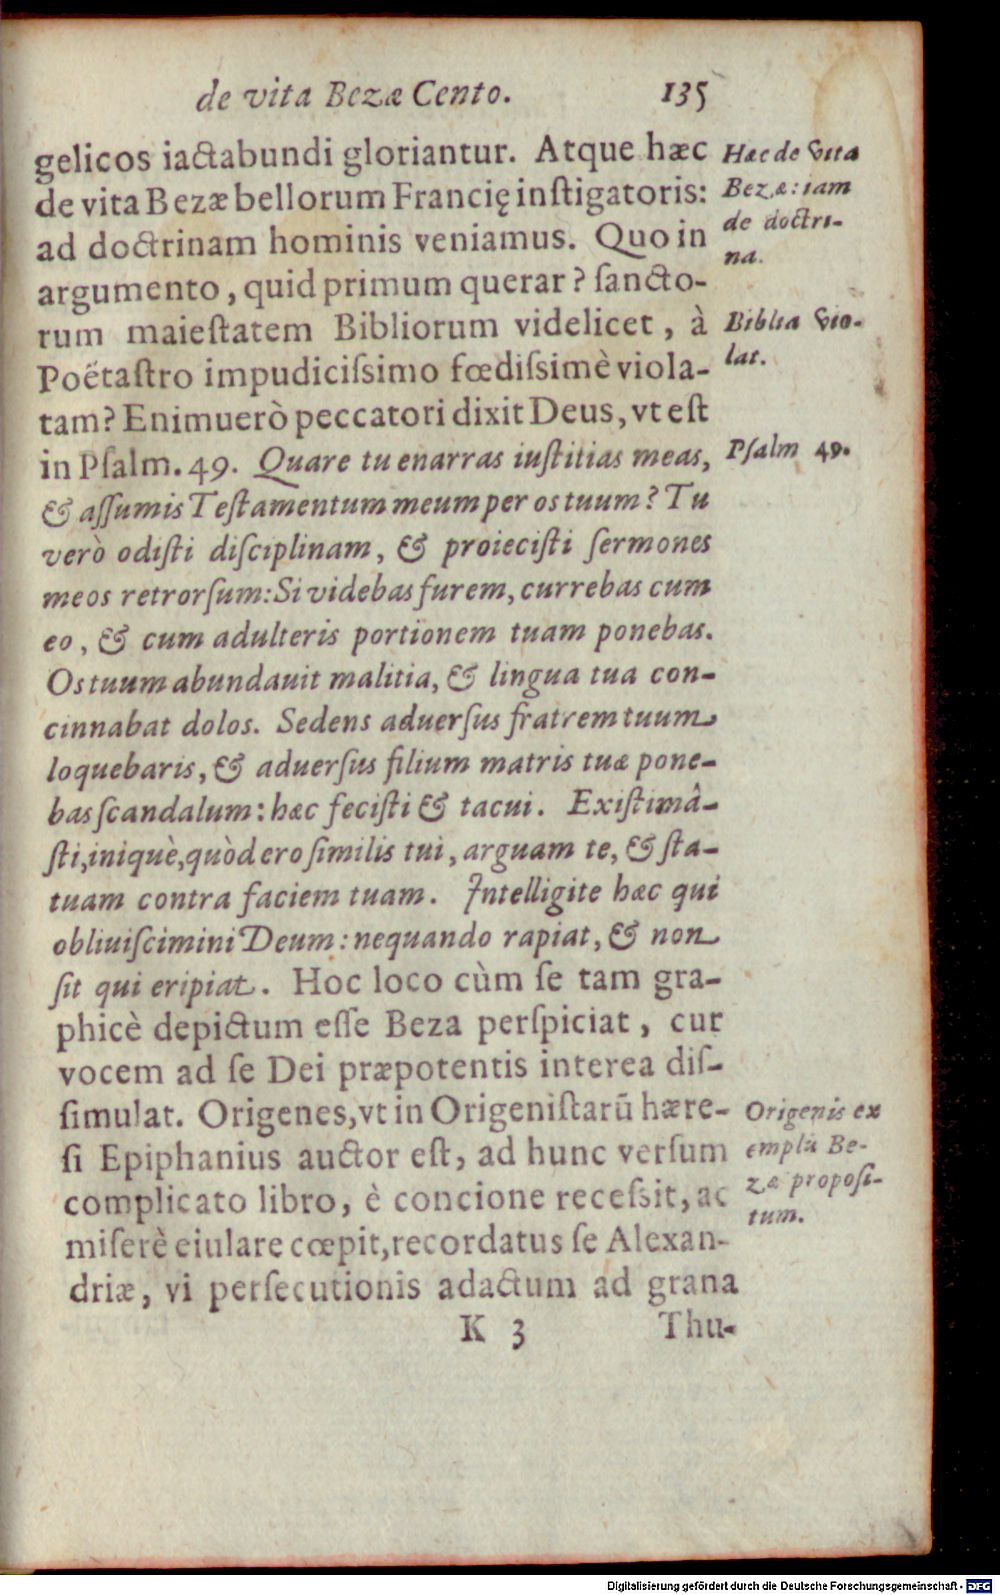 de vita Bezæ Cento. 135
gelicos iactabundi gloriantur. Atque hæc
de vita Bezæ bellorum Francię instigatoris:
ad doctrinam hominis veniamus. Quo in
argumento, quid primum querar? sancto-
rum maiestatem Bibliorum videlicet, à
Poëtastro impudicissimo fœdissimè viola-
tam? Enimuerò peccatori dixit Deus, vt est
in Psalm. 49. Quare tu enarras iustitias meas,
& assumis Testamentum meum per os tuum? Tu
verò odisti disciplinam, & proiecisti sermones
meos retrorsum: Si videbas furem, currebas cum
eo, & cum adulteris portionem tuam ponebas.
Os tuum abundauit malitia, & lingua tua con-
cinnabat dolos. Sedens aduersus fratrem tuum
loquebaris, & aduersus filium matris tuæ pone-
bas scandalum: hæc fecisti & tacui. Existimâ-
sti, iniquè, quòd ero similis tui, arguam te, & sta-
tuam contra faciem tuam. Intelligite hæc qui
obliuiscimini Deum: nequando rapiat, & non
sit qui eripiat. Hoc loco cùm se tam gra-
phicè depictum esse Beza perspiciat, cur
vocem ad se Dei præpotentis interea dis-
simulat. Origenes, vt in Origenistarũ hære-
si Epiphanius auctor est, ad hunc versum
complicato libro, è concione recessit, ac
miserè eiulare cœpit, recordatus se Alexan-
driæ, vi persecutionis adactum ad grana
K 3 Thu-
Hæc de vita
Bezæ: iam
de doctri-
na.
Biblia vio-
lat.
Psalm 49.
Origenis ex
emplũ Be-
zæ proposi-
tum.
Digitalisierung gefördert durch die Deutsche Forschungsgemeinschaft - DFG